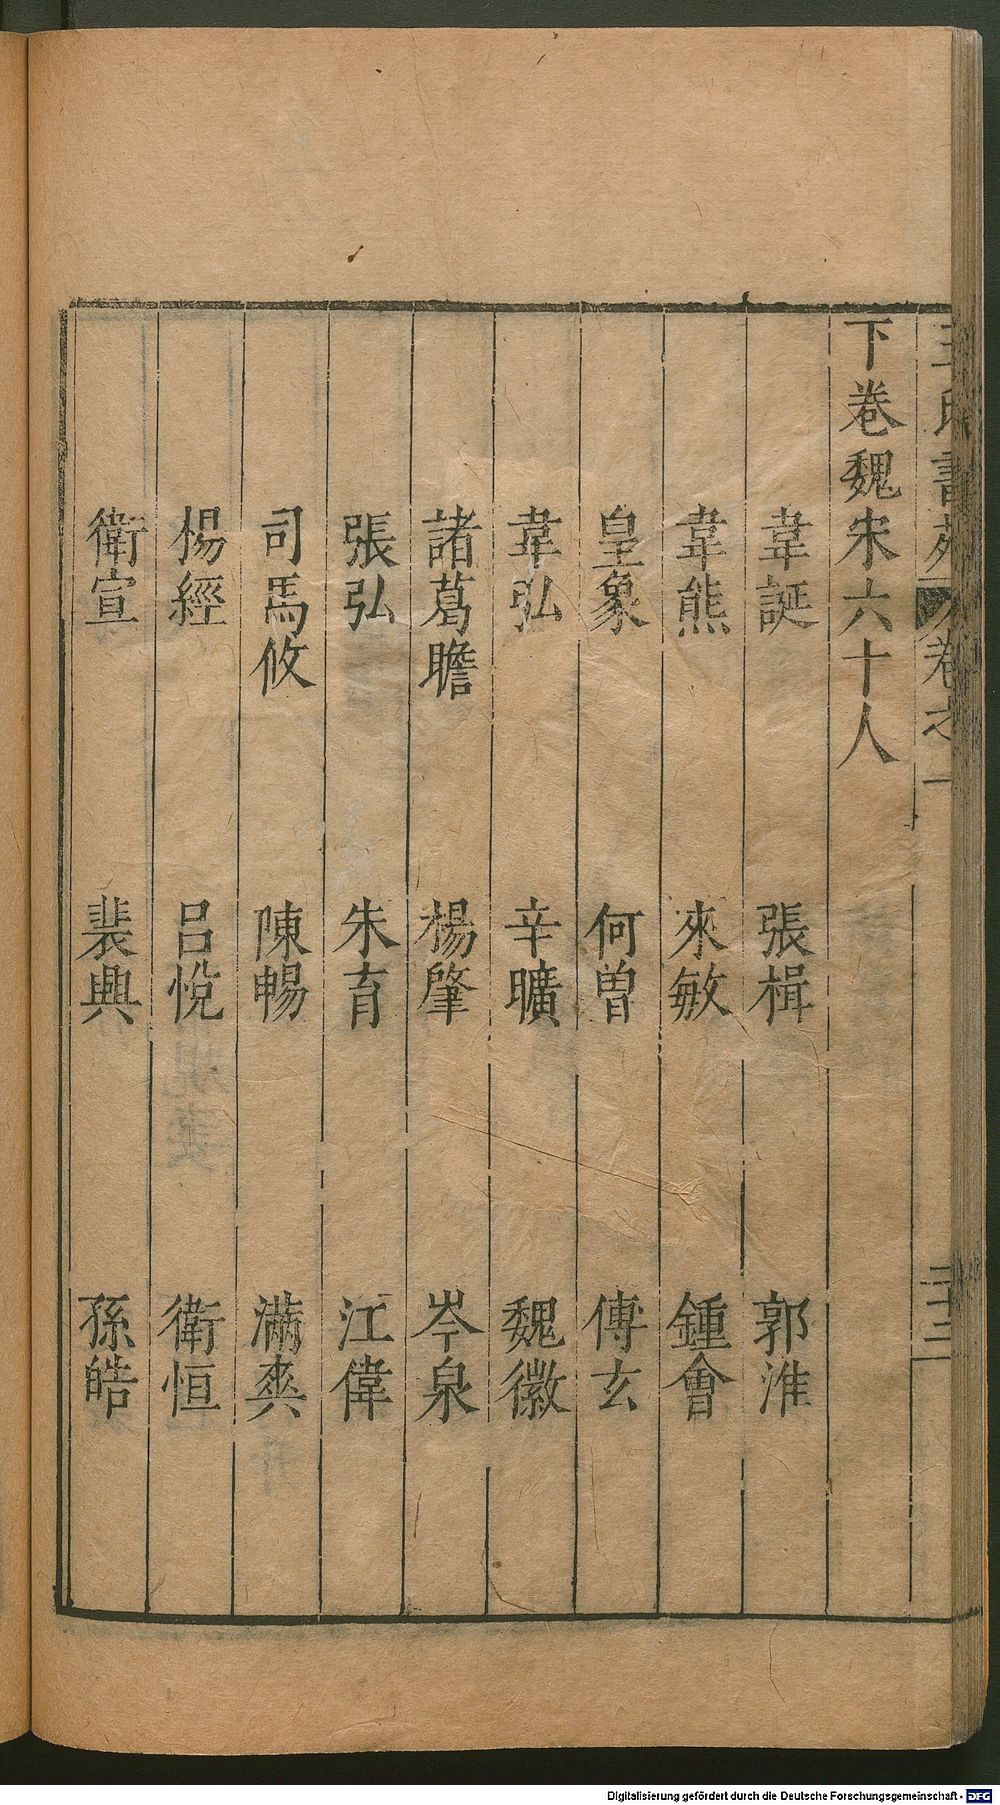 王氏書苑 卷之一 二十三
下卷魏宋六十人
韋誕 張楫 郭淮
韋熊 來敏 鍾會
皇象 何曾 傅玄
韋弘 辛曠 魏徽
諸葛瞻 楊肇 岑泉
張弘 朱育 江偉
司馬攸 陳暢 滿爽
楊經 呂悅 衛恒
衛宣 裴興 孫皓
Digitalisierung gefördert durch die Deutsche Forschungsgemeinschaft - DFG